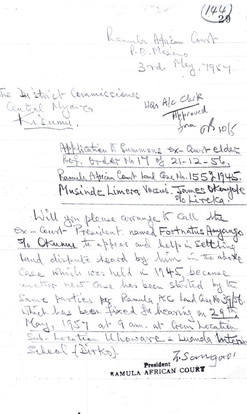 (144)
29
Ramula African Court
P.O. Maseno
3rd May, 1957
The District Commissioner
Central Nyanza
Kisumu.
A/C Clerk
Approved
10/5
Application to Summons ex-Court elder
Ref. Order No 17 of 21-12-56.
Ramula African Court Land Case No. 155 of 1945.
Musinde Limera Versus. James
S/o Lireka
Will you please arrange to call the
ex-Court President named Fortnatus
S/o Okumu to appear and help in settling
land dispute heard by him in the above
Case which was held in 1945, because
another new Case has been started by the
same parties
which has been fixed for hearing on 29th
May, 1957 at 9 am. at Gem Location
Sub-Location Uhowore - Luanda Inter
School (Dirko).
President
RAMULA AFRICAN COURT